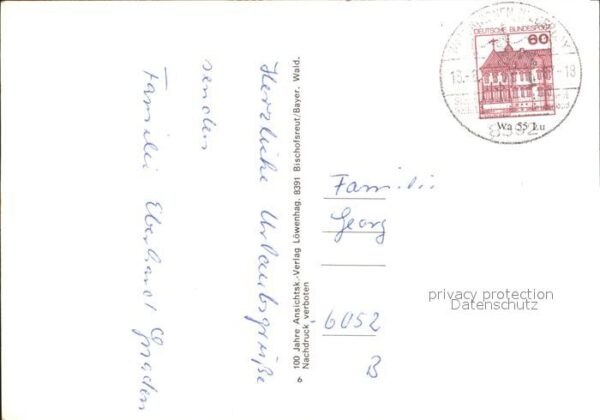 Herzliche Urlaubsgrüße
senden
Familie Eberhard
100 Jahre Ansichtsk.-Verlag Löwenhag, 8391 Bischofsreut/Bayer. Wald.
Nachdruck verboten
6
DEUTSCHE BUNDESPOST
60
Wa 55 Lu
Familie
Georg
6052
B
privacy protection
Datenschutz